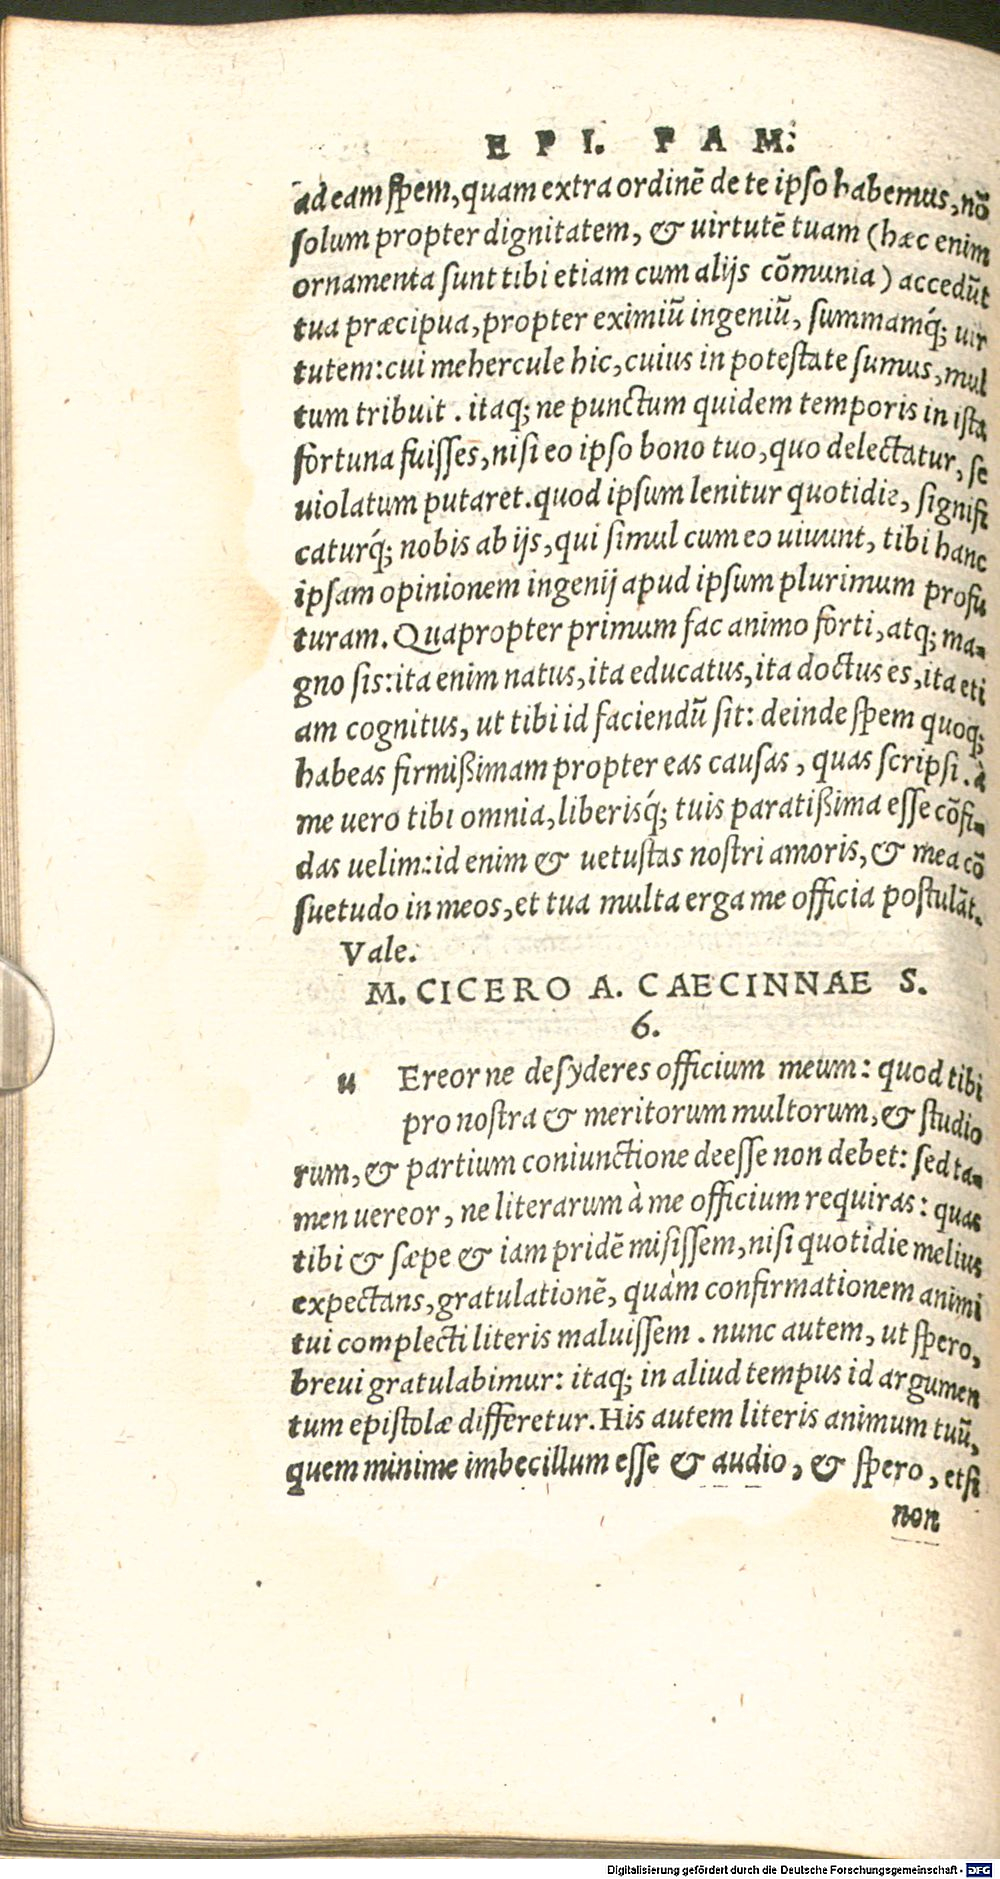 EPI. FAM.
ad eam spem, quam extra ordinẽ de te ipso habemus, nõ
solum propter dignitatem, & uirtutẽ tuam (hæc enim
ornamenta sunt tibi etiam cum alijs cõmunia) accedũt
tua præcipua, propter eximiũ ingeniũ, summamq́; uir
tutem: cui mehercule hic, cuius in potestate sumus, mul
tum tribuit. itaq; ne punctum quidem temporis in ista
fortuna fuisses, nisi eo ipso bono tuo, quo delectatur, se
uiolatum putaret. quod ipsum lenitur quotidie, signifi
caturq́; nobis ab ijs, qui simul cum eo uiuunt, tibi hanc
ipsam opinionem ingenij apud ipsum plurimum profu
turam. Quapropter primum fac animo forti, atq; ma-
gno sis: ita enim natus, ita educatus, ita doctus es, ita eti
am cognitus, ut tibi id faciendũ sit: deinde spem quoq;
habeas firmißimam propter eas causas, quas scripsi. à
me uero tibi omnia, liberisq́; tuis paratißima esse cõfi-
das uelim: id enim & uetustas nostri amoris, & mea cõ
suetudo in meos, et tua multa erga me officia postulãt.
Vale.
M. CICERO A. CAECINNAE S.
6.
u Ereor ne desyderes officium meum: quod tibi
pro nostra & meritorum multorum, & studio
rum, & partium coniunctione deesse non debet: sed ta-
men uereor, ne literarum à me officium requiras: quas
tibi & sæpe & iam pridẽ misissem, nisi quotidie melius
expectans, gratulationẽ, quàm confirmationem animi
tui complecti literis maluissem. nunc autem, ut spero,
breui gratulabimur: itaq; in aliud tempus id argumen
tum epistolæ differetur. His autem literis animum tuũ,
quem minime imbecillum esse & audio, & spero, etsi
non
Digitalisierung gefördert durch die Deutsche Forschungsgemeinschaft - DFG